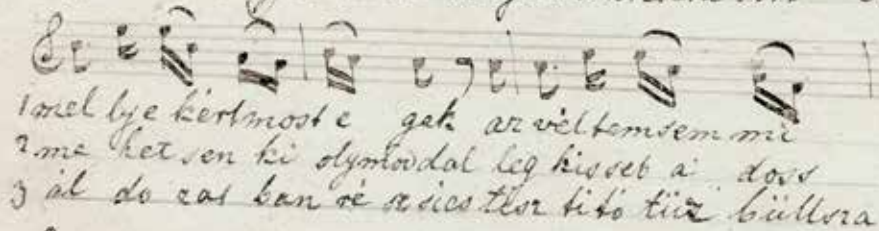 1 mel lye kértmost e gek azvéltemsem mi
2 me het sen ki olymoddal leg kisseb a' doss
3 ál do zat ban ré szsics tisz titó tüz büllsza